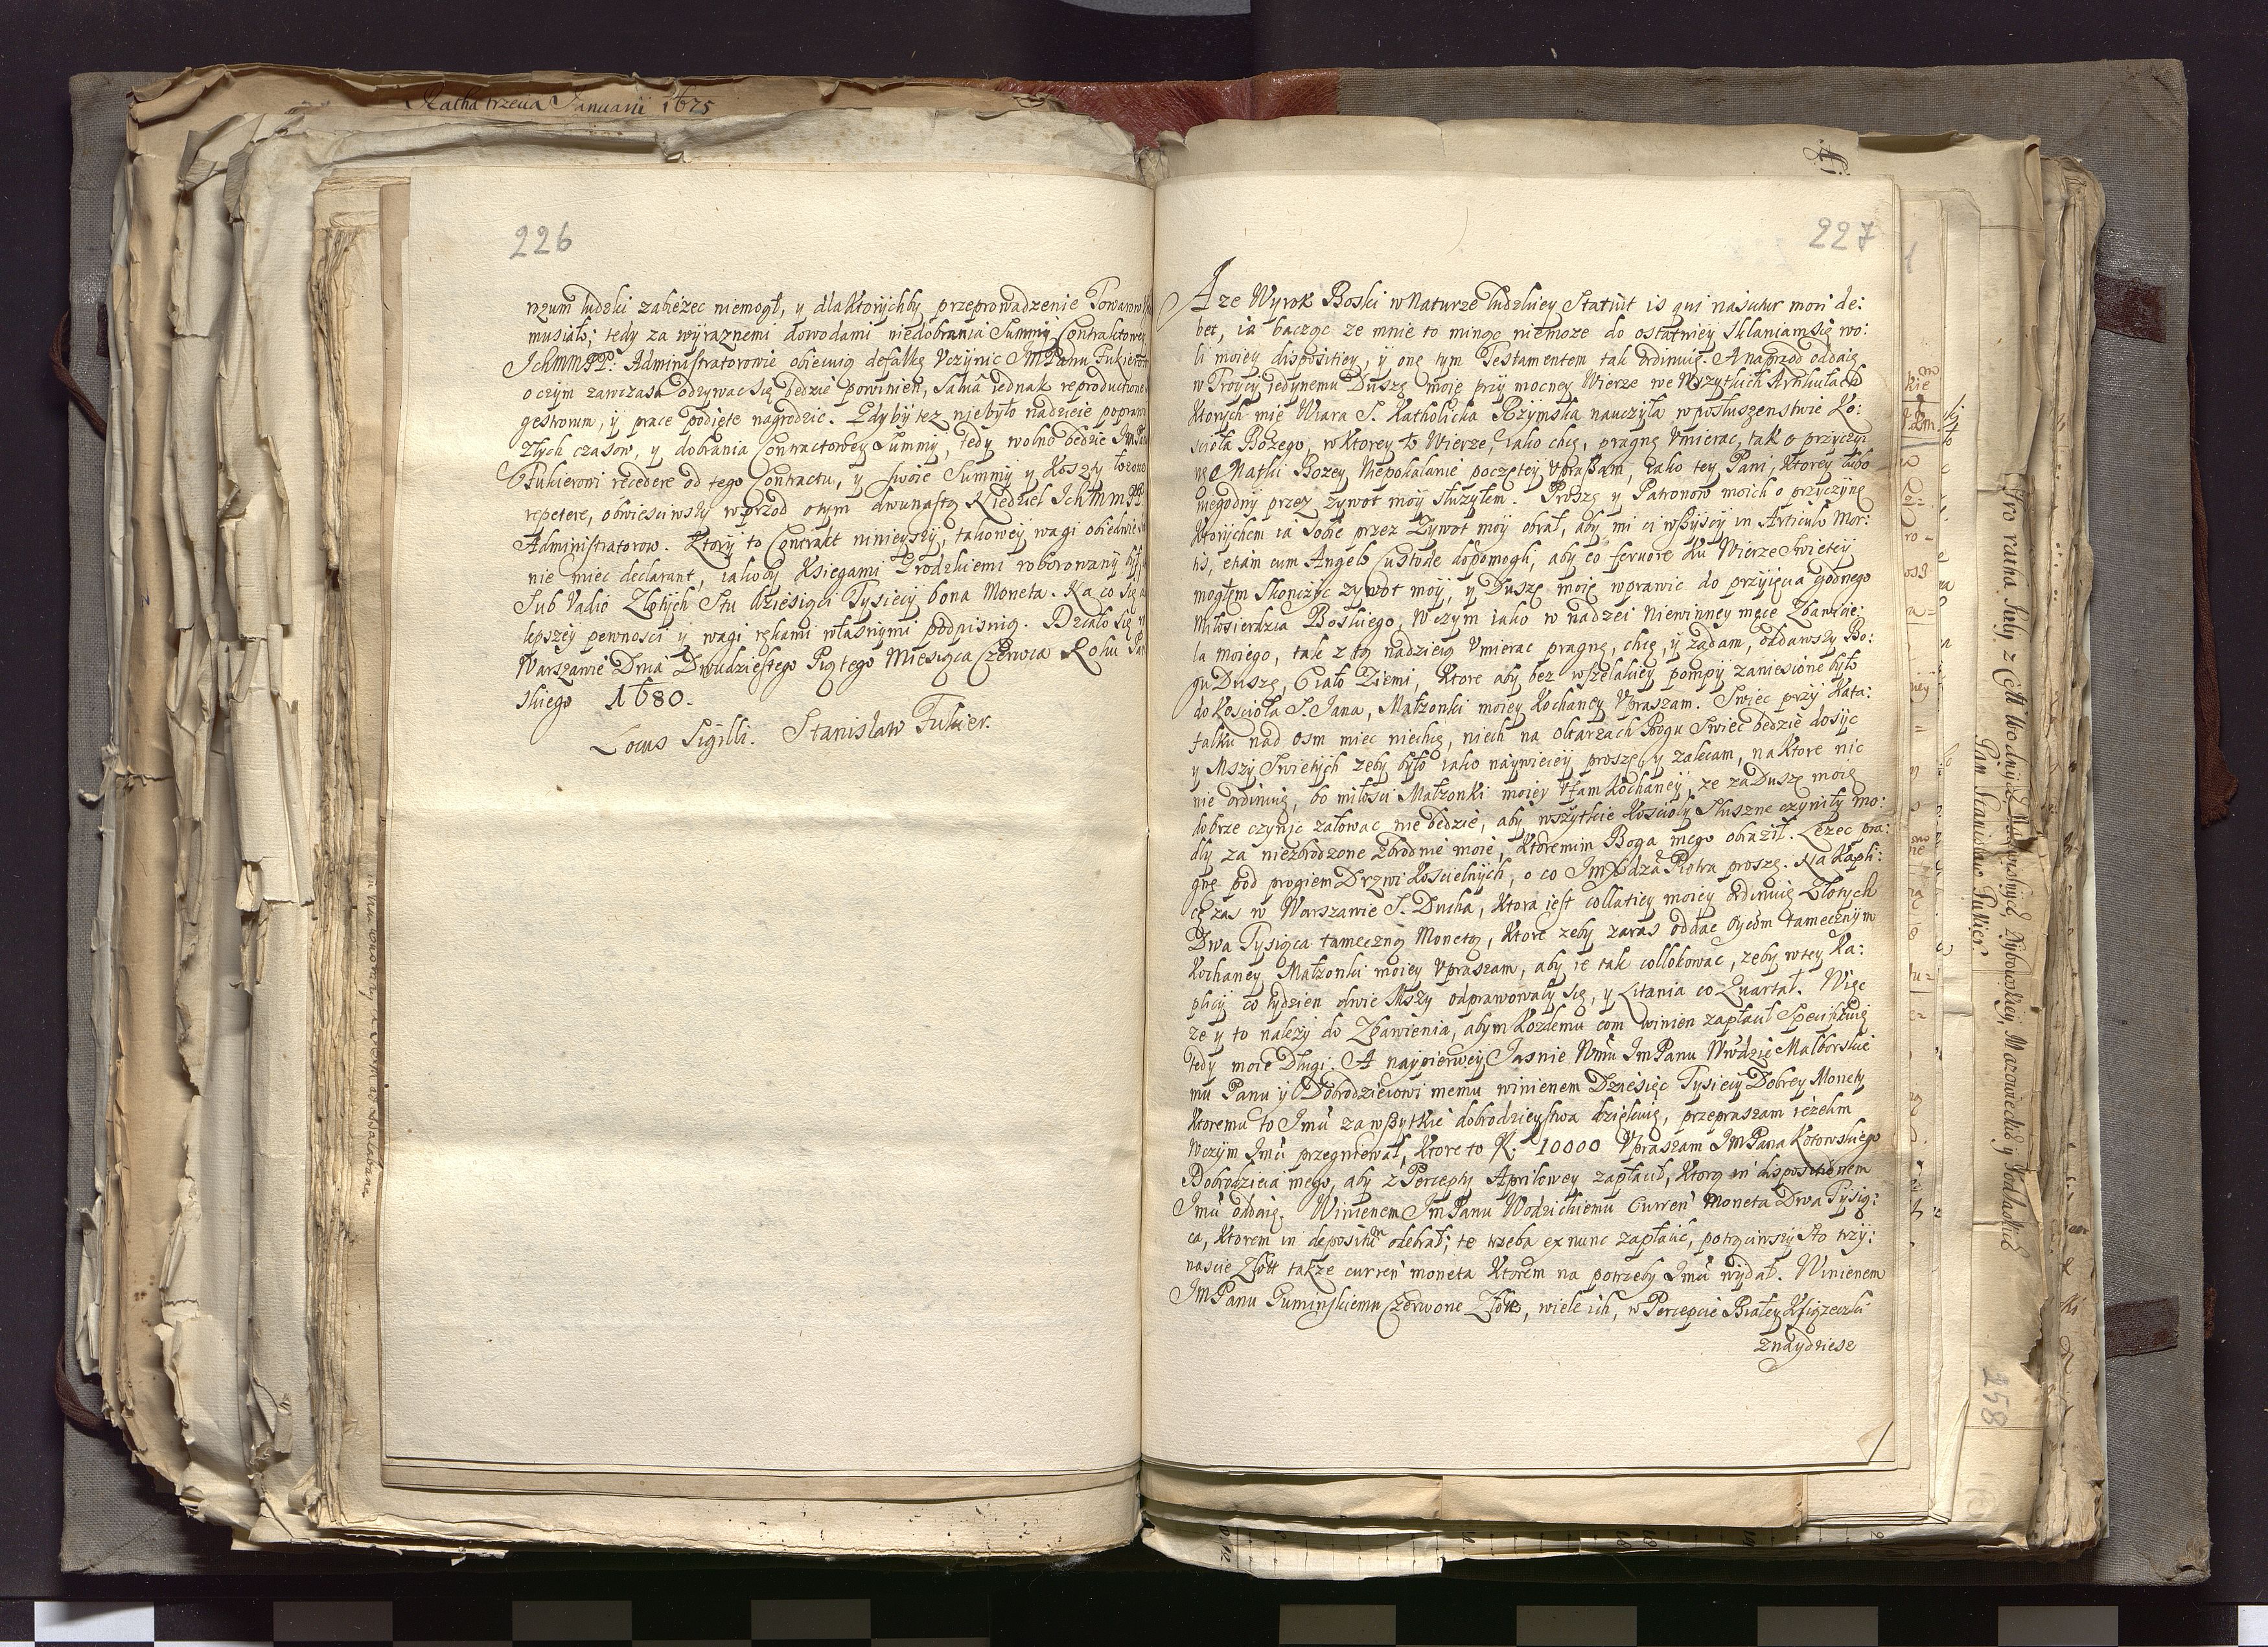 Ratha trzecia Januarii 1675
226
rozum ludzki zabieżec niemogł, y dla Ktorychby przeprowadzenie Towarow
musiało; tedy za wyraznemi dowodami niedobrania Summy Contraktowey
IchMMPP: Administratorowie obiecuią defalkę Vczynic JMPanu Fukierow
o czym zawczasu odzywac się będzie powinien, salva iednak reproductione
gestrorum, y prace podięte nagrodzic. Gdyby tez niebyło nadzieie popraw
złych czasow, y dobrania Contractowey Summy, tedy wolno będzie JmPan
Fukierowi recedere od tego Contractu, y swoie Summy y Koszty łozone
repetere, obwiesciwszy wprzod o tym dwunastą Niedziel IchMmPP
Administratorow. Ktory to Contrakt ninieyszy, takowey wagi obiedwie
nie miec declarant, iakoby Ksiegami Grodzkiemi roborowany był
Sub Vadio Złotych Stu dziesiąci Tysięcy bona Moneta. Na co się
lepszey pewnosci y wagi rękami własnymi podpisuią. Działo się w
Warszawie Dnia Dwudziestego Piątego Miesiąca Czerwca Roku Pan
skiego 1680.
Locus Sigilli. Stanisław Fukier.
227
A ze Wyrok Boski w Naturze ludzkiey Statuit is qui nascitur mori de:
bet, ia bacząc ze mnie to minąc niemoze do ostatniey skłaniam się wo:
li moiey dispositiey, y onę tym Testamentem tak ordinuię. A naprzod oddaię
w Troycy iedynemu Duszę moię przy mocney Wierze we Wszytkich Artikułach
Ktorych mię Wiara S. Katholicka Rzymska nauczyła w posłuszenstwie Ko:
scioła Bozego, w Ktorey to Wierze, iako chcę, pragnę Vmierac, tak o przyczy:
nę Matki Bozey Niepokalanie poczętey Vpraszam, iako tey Pani, Ktorey lubo
niegodny przez zywot moy słuzyłem. Proszę y Patronow moich o przyczynę
Ktorychem ia sobie przez Zywot moy obrał, aby mi ci wszyscy in Articulo Mor:
tis, etiam cum Angelo Custode dopomogli, aby eo fervore Ku Wierze Swietey
mogłem skonczyc zywot moy, y Duszę moię wprawic do przyięcia godnego
Miłosierdzia Boskiego, Wczym iako w nadziei Niewinney męce Zbawicie:
la moiego, tak z tą nadzieią Vmierac pragnę, chcę, y ządam, oddawszy Bo:
gu Duszę, Ciało Ziemi, Ktore aby bez wszelakiey pompy zaniesione było
do Koscioła S. Jana, Małzonki moiey Kochaney Vpraszam. Swiec przy Kata:
falku nad osm miec niechcę, niech na ołtarzach Bogu Swiec będzie dosyc
y Mszy Swietych zeby było iako naywięcey proszę y zalecam, na Ktore nic
nie ordinuię, bo miłosci Małzonki moiey Vfam Kochaney, ze za Duszę moię
dobrze czynic załowac nie będzie, aby wszytkie Koscioły Słuszne czyniły mo:
dły za niezbrodzone zbrodnie moie, Ktoremim Boga mego obraził. Lezec pra:
gnę pod progiem Drzwi Koscielnych, o co JmXdza Piotra proszę. Na Kapli:
cę zas w Warszawie S. Ducha, Ktora iest collatiey moiey ordinuię Złotych
Dwa Tysiąca tameczną Monetą, Ktore zeby zaras oddac Oycom tamecznym
Kochaney Małzonki moiey Vpraszam, aby ie tak collokowac, zeby w tey Ka:
plicy co tydzien dwie Mszy odprawowały się, y Litania co Quartał. Więc
ze y to nalezy do Zbawienia, abym Kozdemu com winien zapłacił Specifikuię
tedy moie Długi. A naypierwey Jasnie Wmu JmPanu Wwdzie Malborskie
mu Panu y Dobrodzieiowi memu winienem Dziesięc Tysięcy Dobrey Monety
Ktoremu to Jmci za wszytkie dobrodzieystwa dziękuię, przepraszam iezelim
Wczym Jmci przegniewał, Ktore to R: 10000 Vpraszam JmPana Kotowskiego
Dobrodzieia mego, aby z Percepty Aprilowey zapłacił, Ktorą in dispositionem
Jmci oddaię. Winienem JmPanu Wodzickiemu Curren moneta Dwa Tysią:
ca, Ktorem in depositum odebrał; te trzeba ex nunc zapłacic, potrąciwszy sto trzy:
nascie Złott takze curren moneta Ktorem na potrzeby Jmci wydał. Winienem
JMPanu Guminskiemu Czerwone Złote, wiele ich, w Percepcie Białey Xsiązeczki
znaydziesz
Pan Stanisław Fukier
258